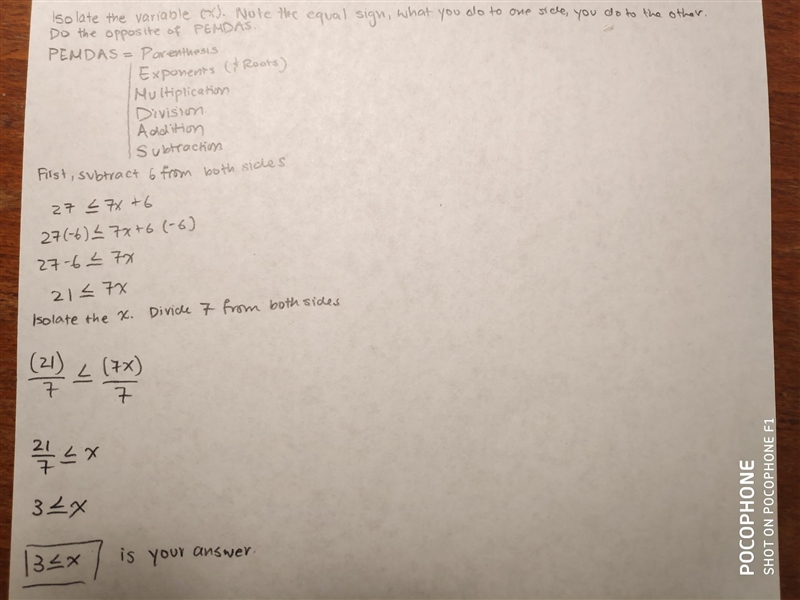 Isolate the variable (x). Note the equal sign, what you do to one side, you do to the other.
Do the opposite of PEMDAS.
PEMDAS = Parenthesis
Exponents (& Roots)
Multiplication
Division
Addition
Subtraction
First, subtract 6 from both sides
27 ≤ 7x +6
27(-6) ≤ 7x+6 (-6)
27-6 ≤ 7x
21 ≤ 7x
Isolate the x. Divide 7 from both sides
(21)/7 ≤ (7x)/7
21/7 ≤ x
3 ≤ x
3 ≤ x is your answer.
POCOPHONE
SHOT ON POCOPHONE F1